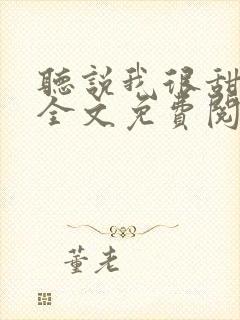 聽說我很甜
全文免費閱
董老